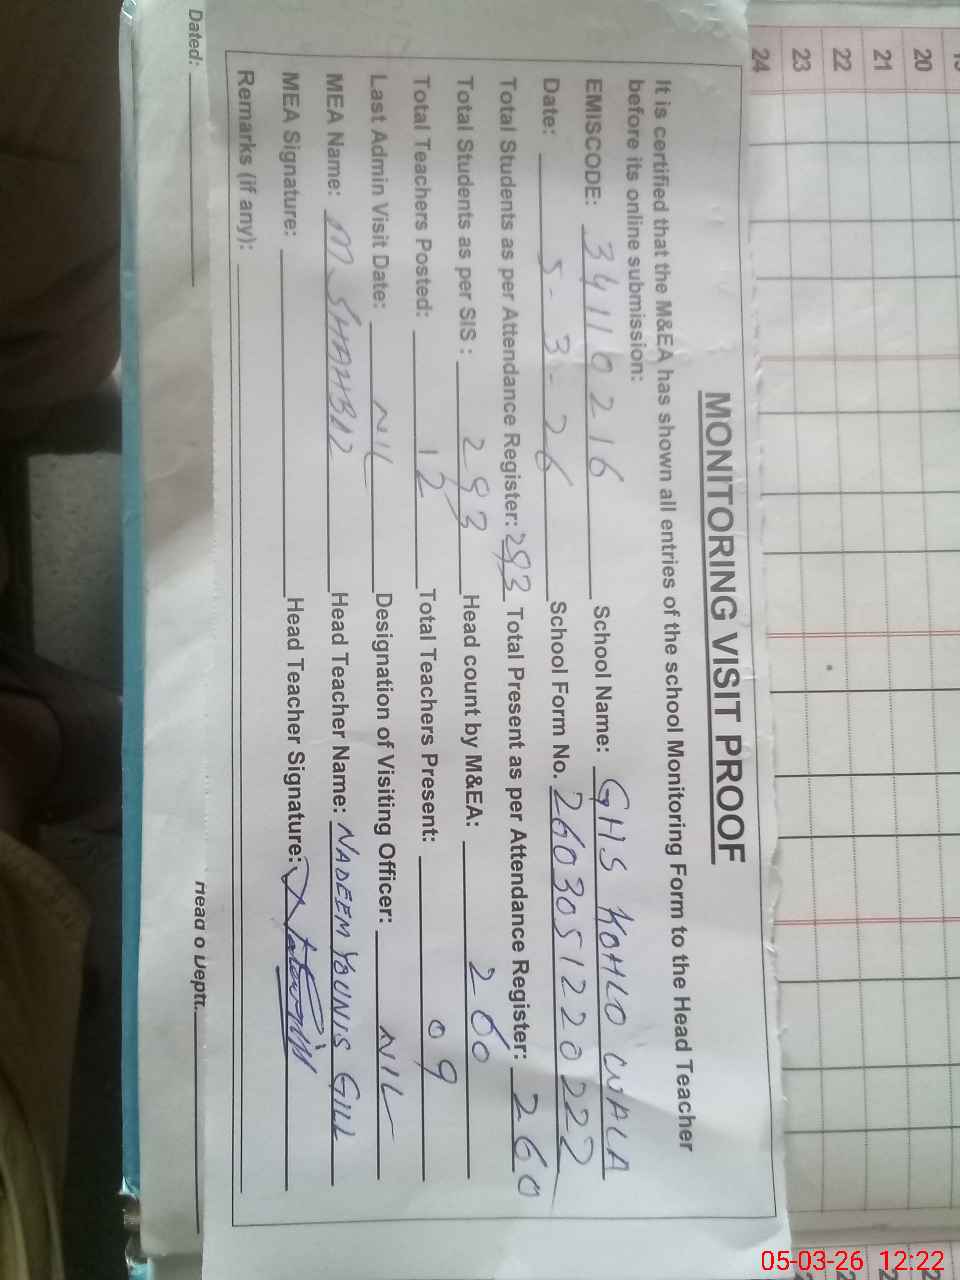 MONITORING VISIT PROOF
It is certified that the M&EA has shown all entries of the school Monitoring Form to the Head Teacher
before its online submission:
EMISCODE: 34110216 School Name: GHS KOHLO WALA
Date: 5-3-26 School Form No. 260305122022​2
Total Students as per Attendance Register: 293 Total Present as per Attendance Register: 260
Total Students as per SIS : 293 Head count by M&EA: 260
Total Teachers Posted: 12 Total Teachers Present: 09
Last Admin Visit Date: NIL Designation of Visiting Officer: NIL
MEA Name: M SHAHBAZ Head Teacher Name: NADEEM YOUNIS GILL
MEA Signature: Head Teacher Signature:
Remarks (if any):
Dated: Head o Deptt.
20
21
22
23
24
05-03-26 12:22